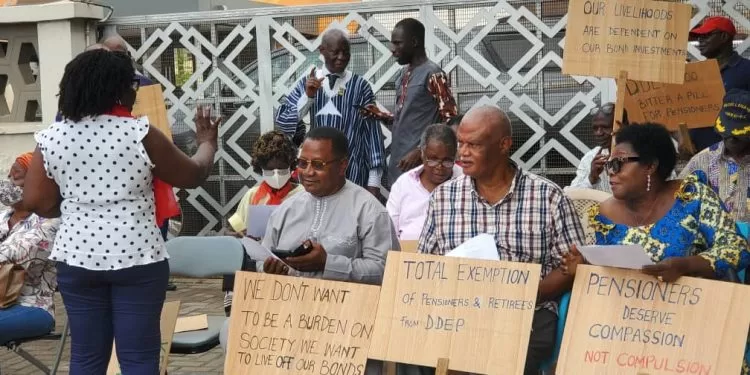 OUR LIVELIHOODS
ARE DEPENDENT ON
OUR BOND INVESTMENTS
BITTER A PILL
FOR PENSIONERS
WE DONT WANT
TO BE A BURDEN ON
SOCIETY. WE WANT
TO LIVE OFF OUR BONDS
TOTAL EXEMPTION
OF PENSIONERS & RETIREES
FROM DDEP
PENSIONERS
DESERVE
COMPASSION
NOT COMPULSION